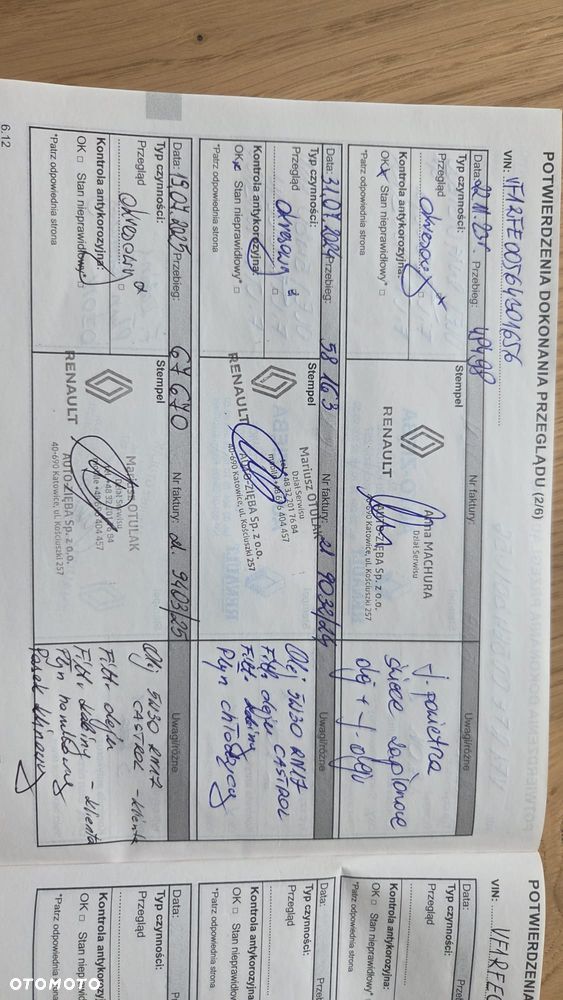 POTWIERDZENIA DOKONANIA PRZEGLĄDU (2/6)
VIN: VF12RFE00564301656
Data: 22.11.23r Przebieg: 49498
Typ czynności:
Przegląd okresowy
Kontrola antykorozyjna:
OK x Stan nieprawidłowy* □
*Patrz odpowiednia strona
Stempel
Nr faktury:
RENAULT
Anna MACHURA
Dział Serwisu
AUTO-ZIĘBA Sp. z o.o.
40-690 Katowice, ul. Kościuszki 257
Uwagi/różne
f. powietrza
świece zapłonowe
olej + f. oleju
Data: 31.07.2024 Przebieg: 58 163
Typ czynności:
Przegląd okresowy
Kontrola antykorozyjna:
OK x Stan nieprawidłowy* □
*Patrz odpowiednia strona
Stempel
Nr faktury: 9032/24
RENAULT
Mariusz OTULAK
Dział Serwisu
tel. +48 32 201 76 94
mobile +48 696 404 457
AUTO-ZIĘBA Sp. z o.o.
40-690 Katowice, ul. Kościuszki 257
Uwagi/różne
Olej 5W30 RN17
Filtr oleju CASTROL
Filtr kabiny
Płyn chłodzący
Data: 19.07.2025 Przebieg: 67 670
Typ czynności:
Przegląd okresowy
Kontrola antykorozyjna:
OK □ Stan nieprawidłowy* □
*Patrz odpowiednia strona
Stempel
Nr faktury: 9403/25
RENAULT
Mariusz OTULAK
Dział Serwisu
tel. +48 32 201 76 94
mobile +48 696 404 457
AUTO-ZIĘBA Sp. z o.o.
40-690 Katowice, ul. Kościuszki 257
Uwagi/różne
Olej 5W30 RN17
CASTROL - klienta
Filtr oleju
Filtr kabiny - klienta
Płyn hamulcowy
Pasek klinowy
6.12
POTWIERDZENIA
VIN: VF1RFE
Data: Przebieg
Typ czynności:
Przegląd
Kontrola antykorozyjna:
OK □ Stan nieprawidłowy*
*Patrz odpowiednia strona
Data: Przebieg
Typ czynności:
Przegląd
Kontrola antykorozyjna:
OK □ Stan nieprawidłowy*
*Patrz odpowiednia strona
Data:
Typ czynności:
Przegląd
Kontrola antykorozyjna:
OK □ Stan nieprawidłowy*
*Patrz odpowiednia strona
OTOMOTO